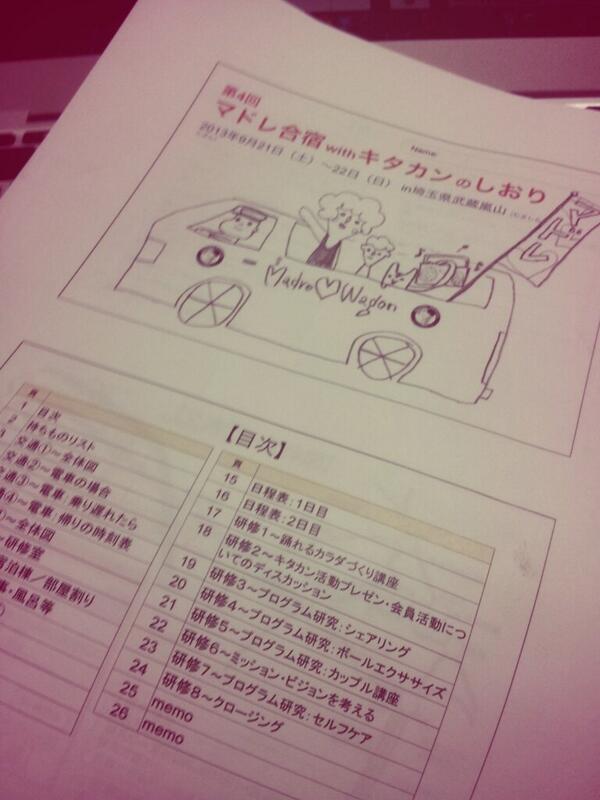 第4回
Name:
マドレ合宿withキタカンのしおり
2013年9月21日（土）～22日（日） in埼玉県武蔵嵐山
マドレ
Madre♡Wagon
【目次】
頁
1 目次
2 持ちものリスト
交通①～全体図
交通②～電車の場合
交通③～電車:乗り遅れたら
④～電車:帰りの時刻表
～全体図
～研修室
宿泊棟／部屋割り
・風呂等
頁
15 日程表:1日目
16 日程表:2日目
17 研修1～踊れるカラダづくり講座
18 研修2～キタカン活動プレゼン・会員活動につ
いてのディスカッション
19 研修3～プログラム研究:シェアリング
20 研修4～プログラム研究:ボールエクササイズ
21 研修5～プログラム研究:カップル講座
22 研修6～ミッション・ビジョンを考える
23 研修7～プログラム研究:セルフケア
24 研修8～クロージング
25 memo
26 memo